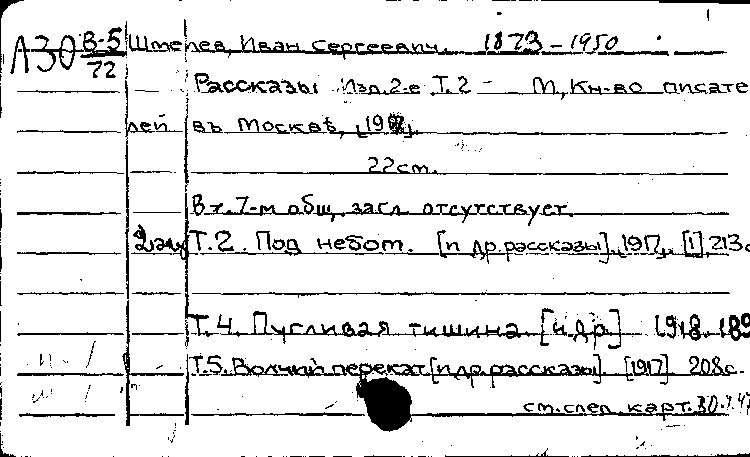 А30 В-5 Шмелев, Иван Сергеевич. 1873-1950
72
Рассказы Изд. 2-е Т. 2 - М., Кн-во писате
лей въ Москвѣ,
22см.
В т. 7-м общ. загл. отсутствует.
2 экз Т. 2. Под небом. [и др. рассказы]. 1917. [1], 213с
Т. 4. Пугливая тишина [и др.] 1918. 189
Т. 5. Волчий перекат [и др. рассказы]. [1917] 208с.
см. след. карт.